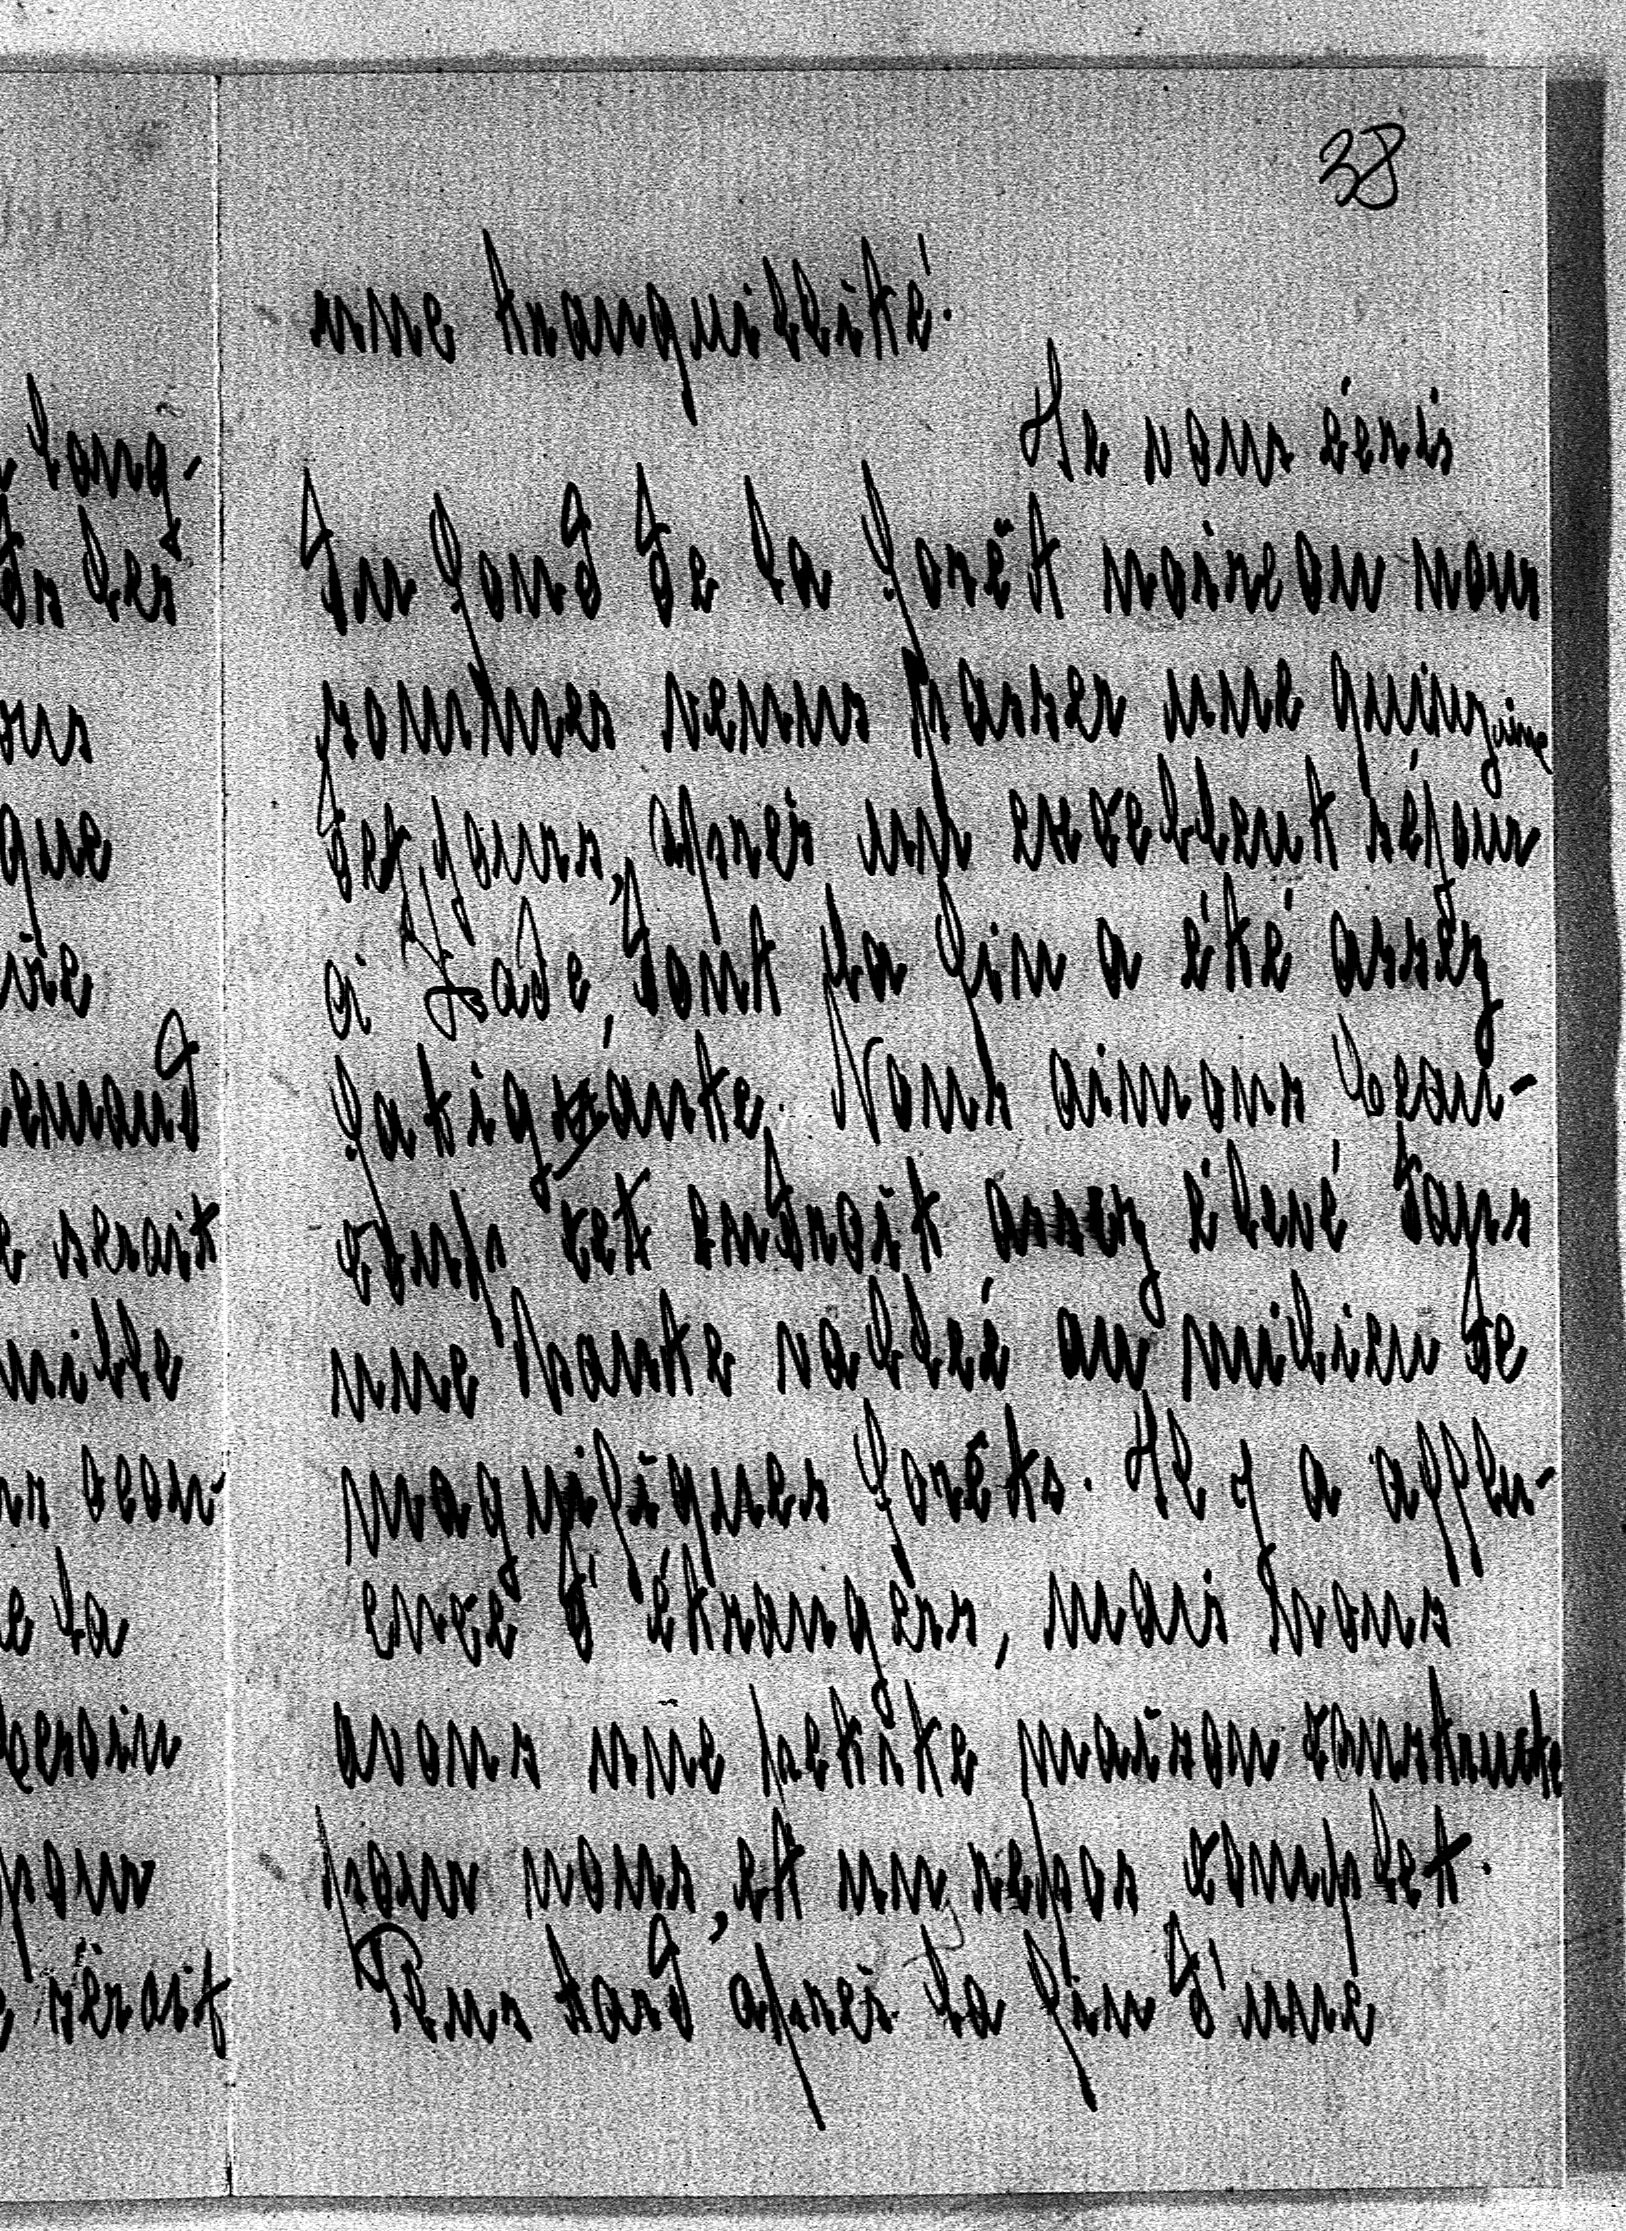 38
une tranquillité.
Je vous écris
du fond de la forêt noire où nous
sommes venus passer une quinzaine
de jours, après un excellent séjour
à Bade, dont la fin a été assez
fatigante. Nous aimons beau-
coup cet endroit assez élevé dans
une haute vallée au milieu de
magnifiques forêts. Il y a afflu-
ence d'étrangers, mais nous
avons une petite maison construite
pour nous, et un repos complet.
Plus tard après la fin d'une
long-
les
ous
que
emand
serait
mille
la
besoin
pour
serait